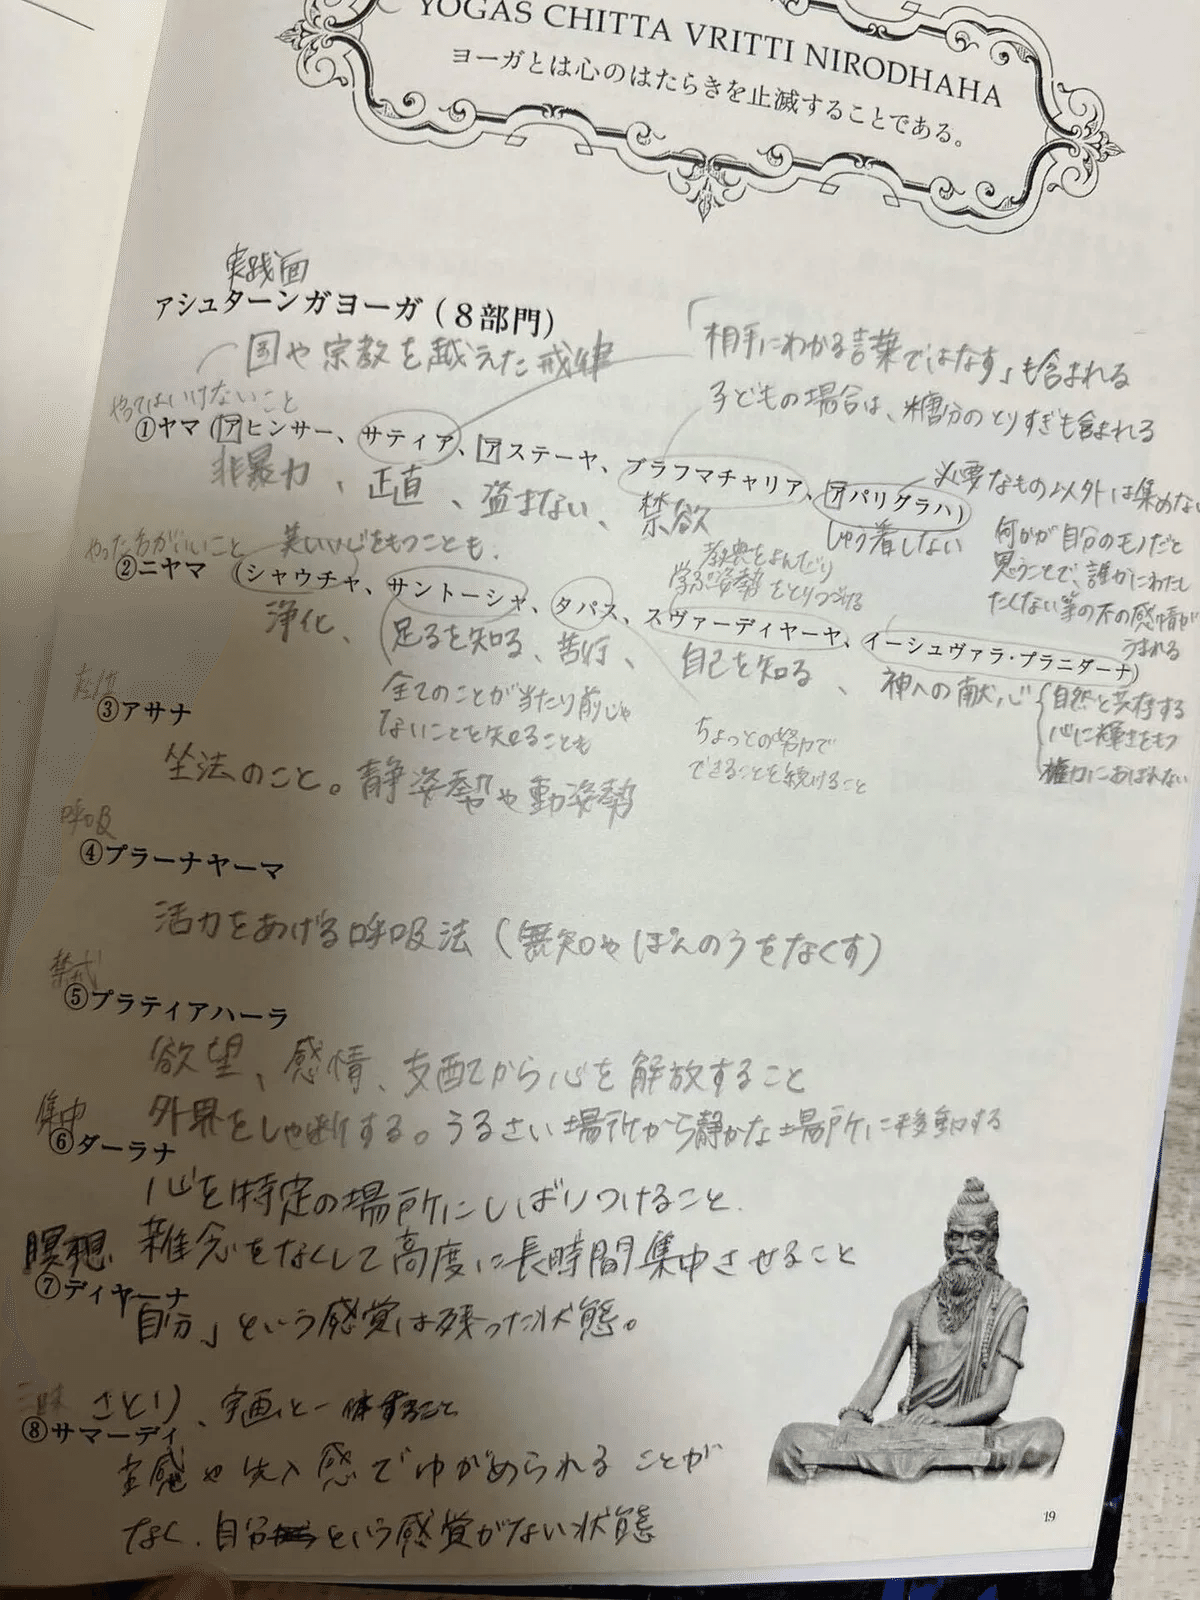 YOGAS CHITTA VRITTI NIRODHAHA
ヨーガとは心のはたらきを止滅することである。
実践面
アシュターンガヨーガ（8部門）
国や宗教を越えた戒律
「相手にわかる言葉ではなす」も含まれる
子どもの場合は、糖分のとりすぎも含まれる
やってはいけないこと
①ヤマ（アヒンサー、サティア、アステーヤ、ブラフマチャリア、アパリグラハ）
非暴力、正直、盗まない、禁欲
しゅう着しない
必要なもの以外は集めない
何かが自分のモノだと
思うことで、誰かにわたし
たくない等の不の感情が
うまれる
やった方がいいこと
美しい心をもつことも.
教典をよんだり
学ぶ姿勢をとりつづける
②ニヤマ（シャウチャ、サントーシャ、タパス、スヴァーディヤーヤ、イーシュヴァラ・プラニダーナ）
浄化、足るを知る、苦行、自己を知る、神への献心
全てのことが当たり前じゃ
ないことを知ることも
ちょっとの努力で
できることを続けること
自然と共存する
心に輝きをもつ
権力におぼれない
坐法
③アサナ
坐法のこと。静姿勢や動姿勢
呼吸
④プラーナヤーマ
活力をあげる呼吸法（無知やぼんのうをなくす）
禁戒
⑤プラティアハーラ
欲望、感情、支配から心を解放すること
外界をしゃ断する。うるさい場所から静かな場所に移動する
集中
⑥ダーラナ
心を特定の場所にしばりつけること.
雑念をなくして高度に長時間集中させること
瞑想
⑦ディヤーナ
自分」という感覚は残った状態。
三昧
さとり、と一体すること
⑧サマーディ
や先入感でゆがめられることが
なく、自分という感覚がない状態
19